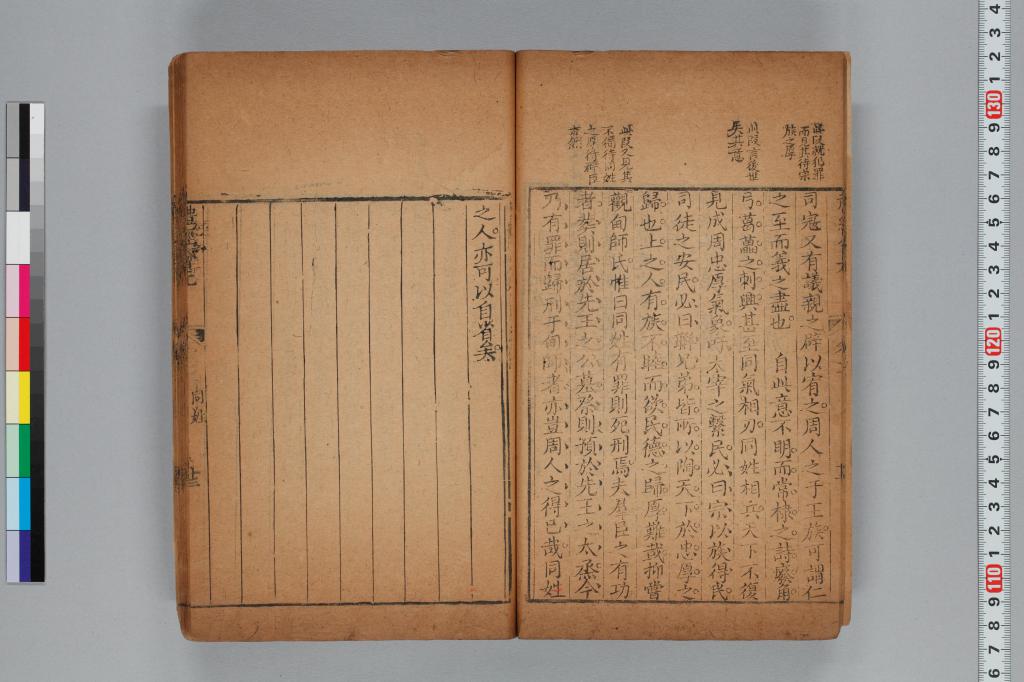 司寇又有議親之辟以宥之周人之于王族可謂仁
之至而義之盡也　自此意不明而常棣之詩廢角
弓葛藟之刺興甚至同氣相刃同姓相兵天下不復
見成周忠厚氣象吁太宰之繫民必曰宗以族得民
司徒之安民必曰聯兄弟皆所以陶天下於忠厚之
歸也上之人有族不睦而欲民德之歸厚難哉抑嘗
觀甸師氏惟曰同姓有罪則死刑焉夫羣臣之有功
者葬則居於先王之公墓祭則預於先王之大烝今
乃有罪而歸刑于甸師者亦豈周人之得已哉同姓
之人亦可以自省矣
此段言後世
失其意
此段又見其
不獨待同姓
之厚待群臣
亦然
同姓